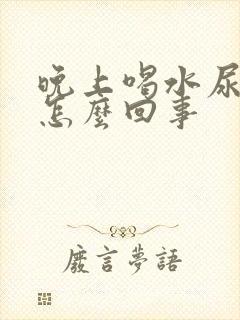 晚上喝水尿
怎麼回事
廢言夢語